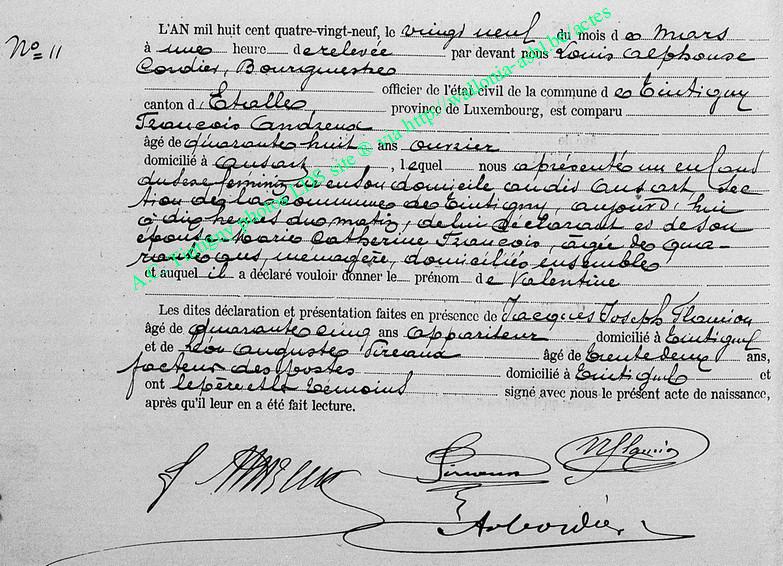 L'AN mil huit cent quatre-vingt-neuf, le vingt neuf du mois d e mars
No 11
à une heure d e relevée par devant nous Louis Alphonse
Cordier, Bourgmestre
officier de l'état civil de la commune d e Tintigny
canton d' Etalle province de Luxembourg, est comparu
François Andreux
âgé de quarante huit ans ouvrier
domicilié à Ansart, lequel nous a présenté un enfant
du sexe féminin né en son domicile audit Ansart, sec
tion de la commune de Tintigny, aujourd'hui
à dix heures du matin, de lui déclarant et de son
épouse Marie Catherine François, agée de qua-
rante ans, ménagère, domiciliés ensemble
et auquel il a déclaré vouloir donner le prénom d e Valentine
Les dites déclaration et présentation faites en présence de Jacques Joseph Flamion
âgé de quarante cinq ans appariteur domicilié à Tintigny
et de Léon Auguste âgé de trente deux ans,
facteur des postes domicilié à Tintigny et
ont le père et les témoins signé avec nous le présent acte de naissance,
après qu'il leur en a été fait lecture.
A.C. Tintigny photos LDS site ® via http://wallonia-asbl.be/actes